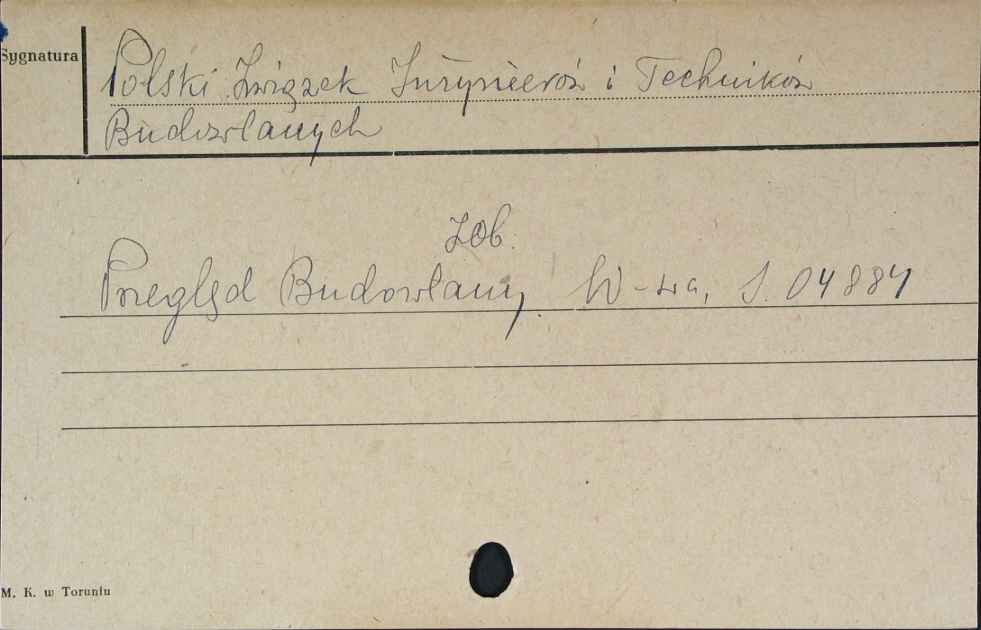 Sygnatura
Polski Związek Inżynierów i Techników
Budowlanych
Zob.
Przegląd Budowlany. W-wa, S. 04884
M. K. w Toruniu